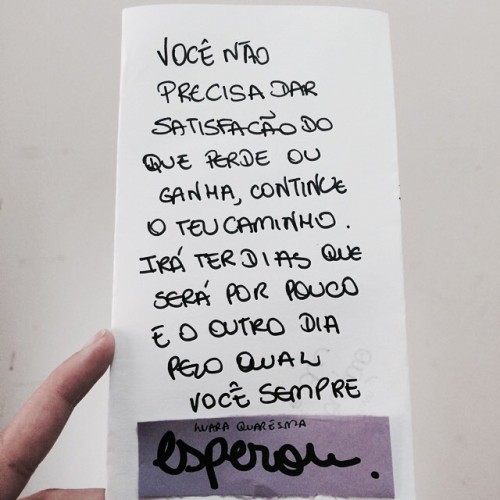 VOCÊ NÃO
PRECISA DAR
SATISFAÇÃO DO
QUE PERDE OU
GANHA, CONTINUE
O TEU CAMINHO.
IRÁ TER DIAS QUE
SERÁ POR POUCO
E O OUTRO DIA
PELO QUAL
VOCÊ SEMPRE
LUARA QUARESMA
esperou.